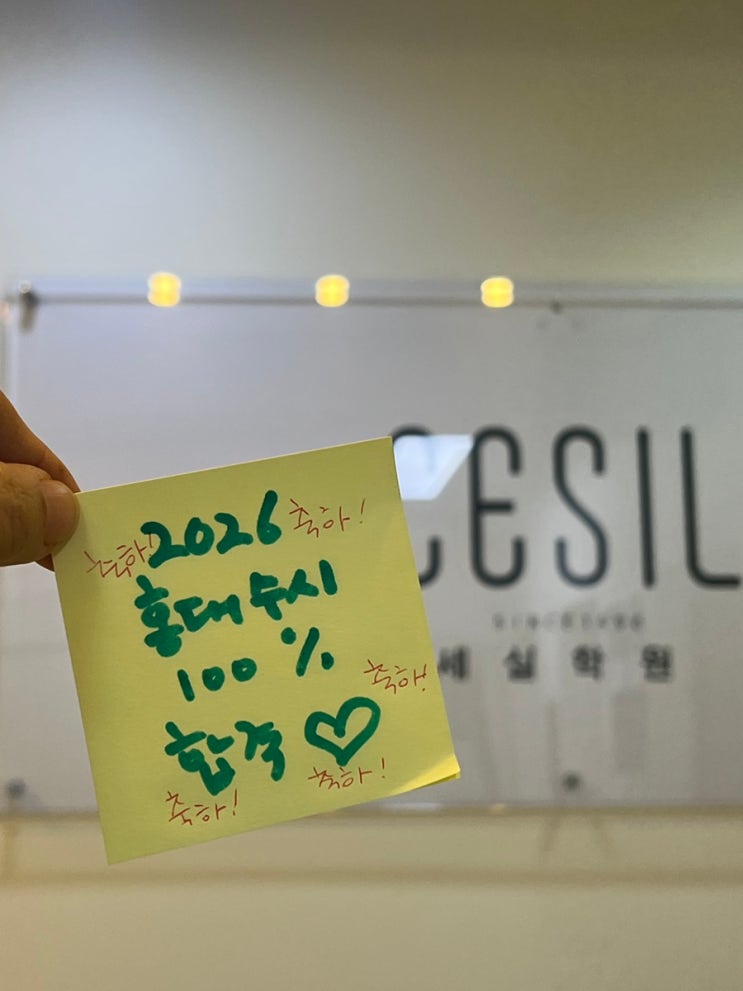 2026
축하!
축하!
홍대 수시
100 %
축하!
합격
축하!
축하!
CESIL
세실학원